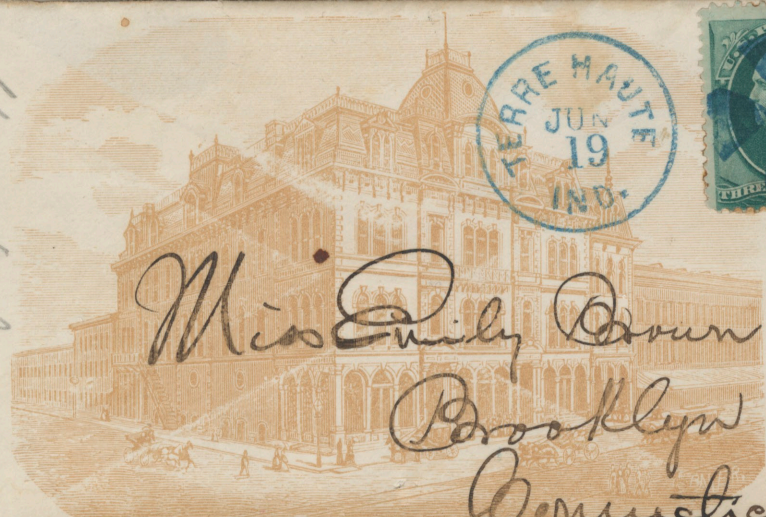 TERRE HAUTE
JUN
19
IND.
U.S.
THREE
Miss Emily Brown
Brooklyn
Connectic